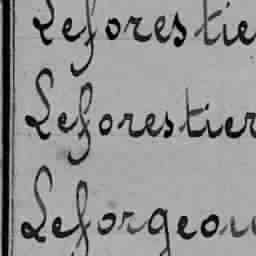 Leforestie
Leforestier
Leforgeou